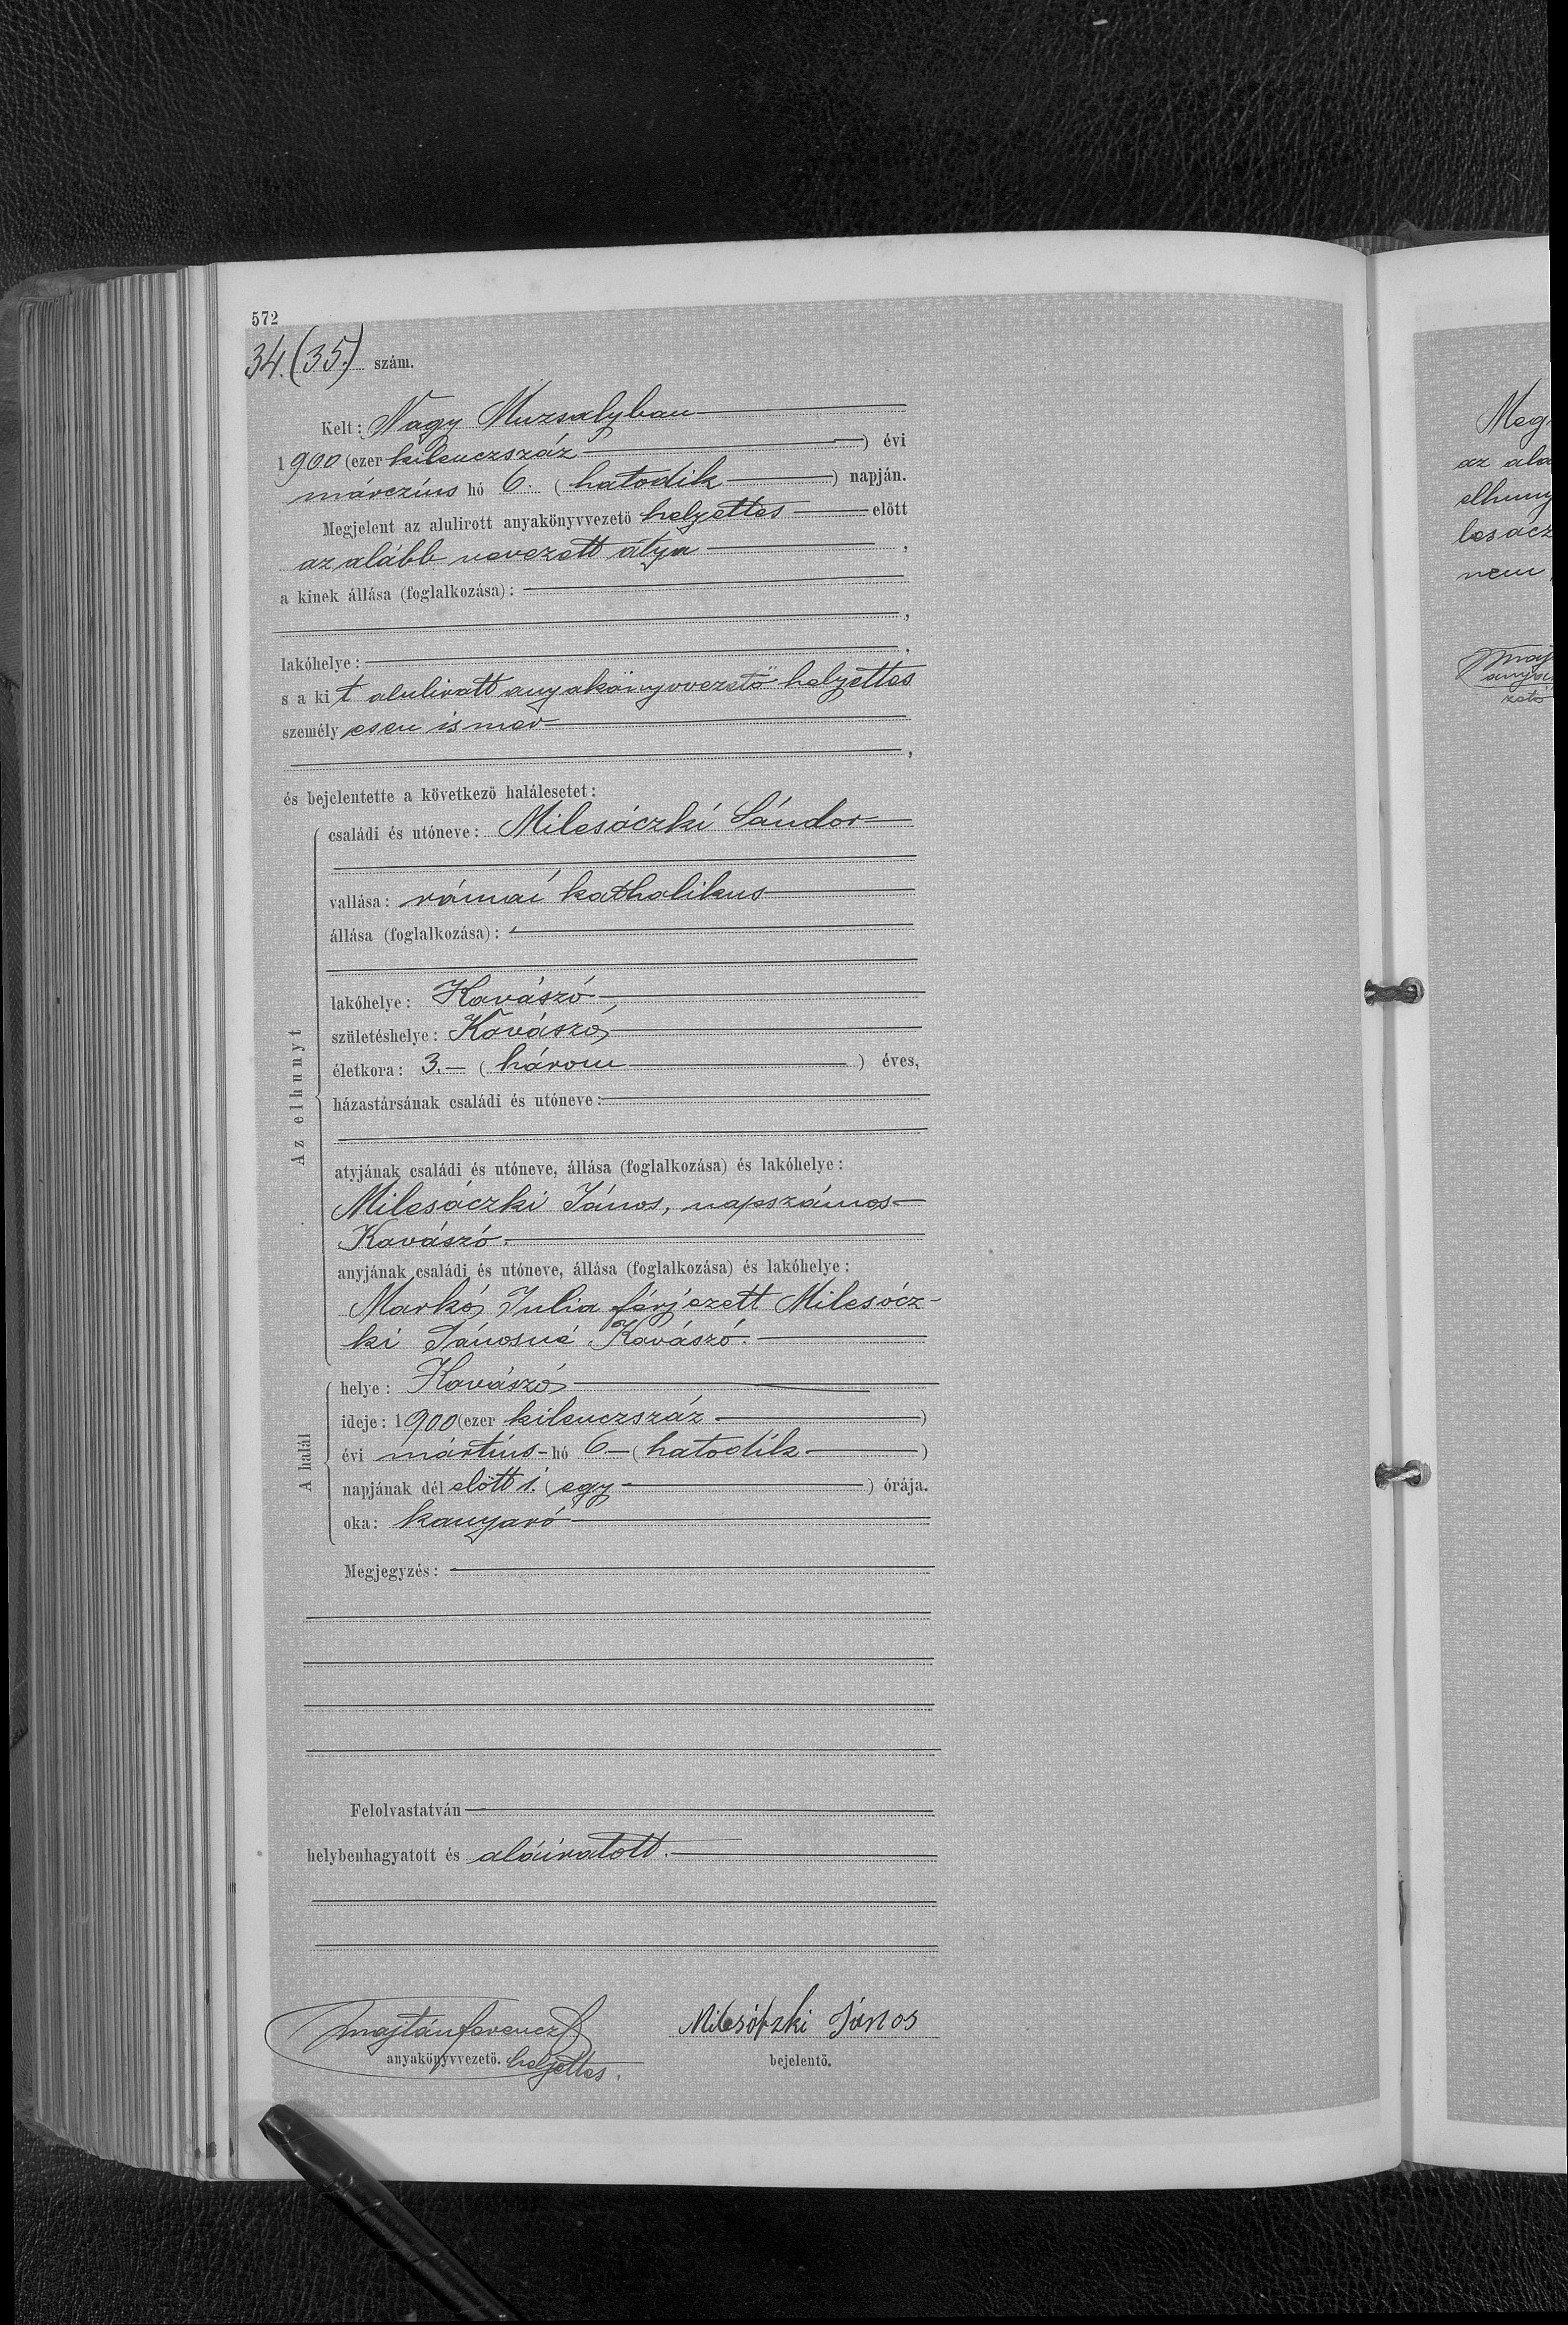 572
34. (35.) szám.
Kelt: Nagy Muzsalyban
1900 (ezer kilenczszáz ) évi
márczius hó 6. (hatodik ) napján.
Megjelent az alulirott anyakönyvvezető helyettes előtt
az alább nevezett atya ,
a kinek állása (foglalkozása):
,
lakóhelye: ,
s a kit alulirott anyakönyvvezető helyettes
személyesen ismer
,
és bejelentette a következő halálesetet:
Az elhunyt
családi és utóneve: Milesóczki Sándor
vallása: római katholikus
állása (foglalkozása):
lakóhelye: Kovászó,
születéshelye: Kovászó,
életkora: 3. – (három ) éves,
házastársának családi és utóneve:
atyjának családi és utóneve, állása (foglalkozása) és lakóhelye:
Milesóczki János, napszámos
Kovászó.
anyjának családi és utóneve, állása (foglalkozása) és lakóhelye:
Markó Julia férjezett Milesócz-
ki Jánosné, Kovászó.
A halál
helye: Kovászó
ideje: 1900 (ezer kilenczszáz )
évi mártius - hó 6. – (hatodik )
napjának dél előtt 1. (egy ) órája.
oka: kanyaró
Megjegyzés:
Felolvastatván
helybenhagyatott és aláiratott.
Majtán Ferencz Milesóczki János
anyakönyvvezető. helyettes. bejelentő.
Meg
az ala
elhuny
nem